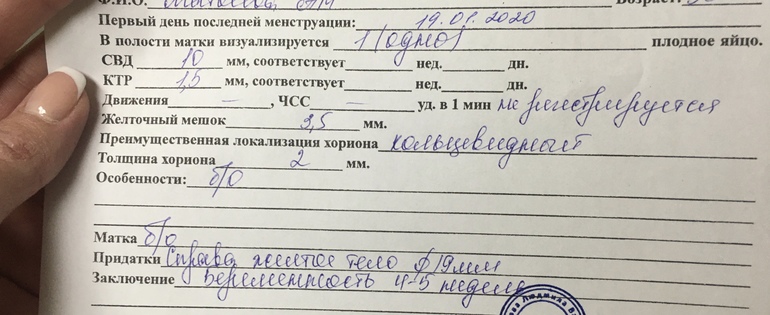 Ф.И.О.
Первый день последней менструации: 19.01.2020
В полости матки визуализируется 1 (одно) плодное яйцо.
СВД 10 мм, соответствует нед. дн.
КТР 1,5 мм, соответствует нед. дн.
Движения —, ЧСС — уд. в 1 мин не регистрируется
Желточный мешок 3,5 мм.
Преимущественная локализация хориона кольцевидный
Толщина хориона 2 мм.
Особенности: б/о
Матка б/о
Придатки Справа желтое тело ф 19 мм
Заключение Беременность 4-5 недель
Людмила